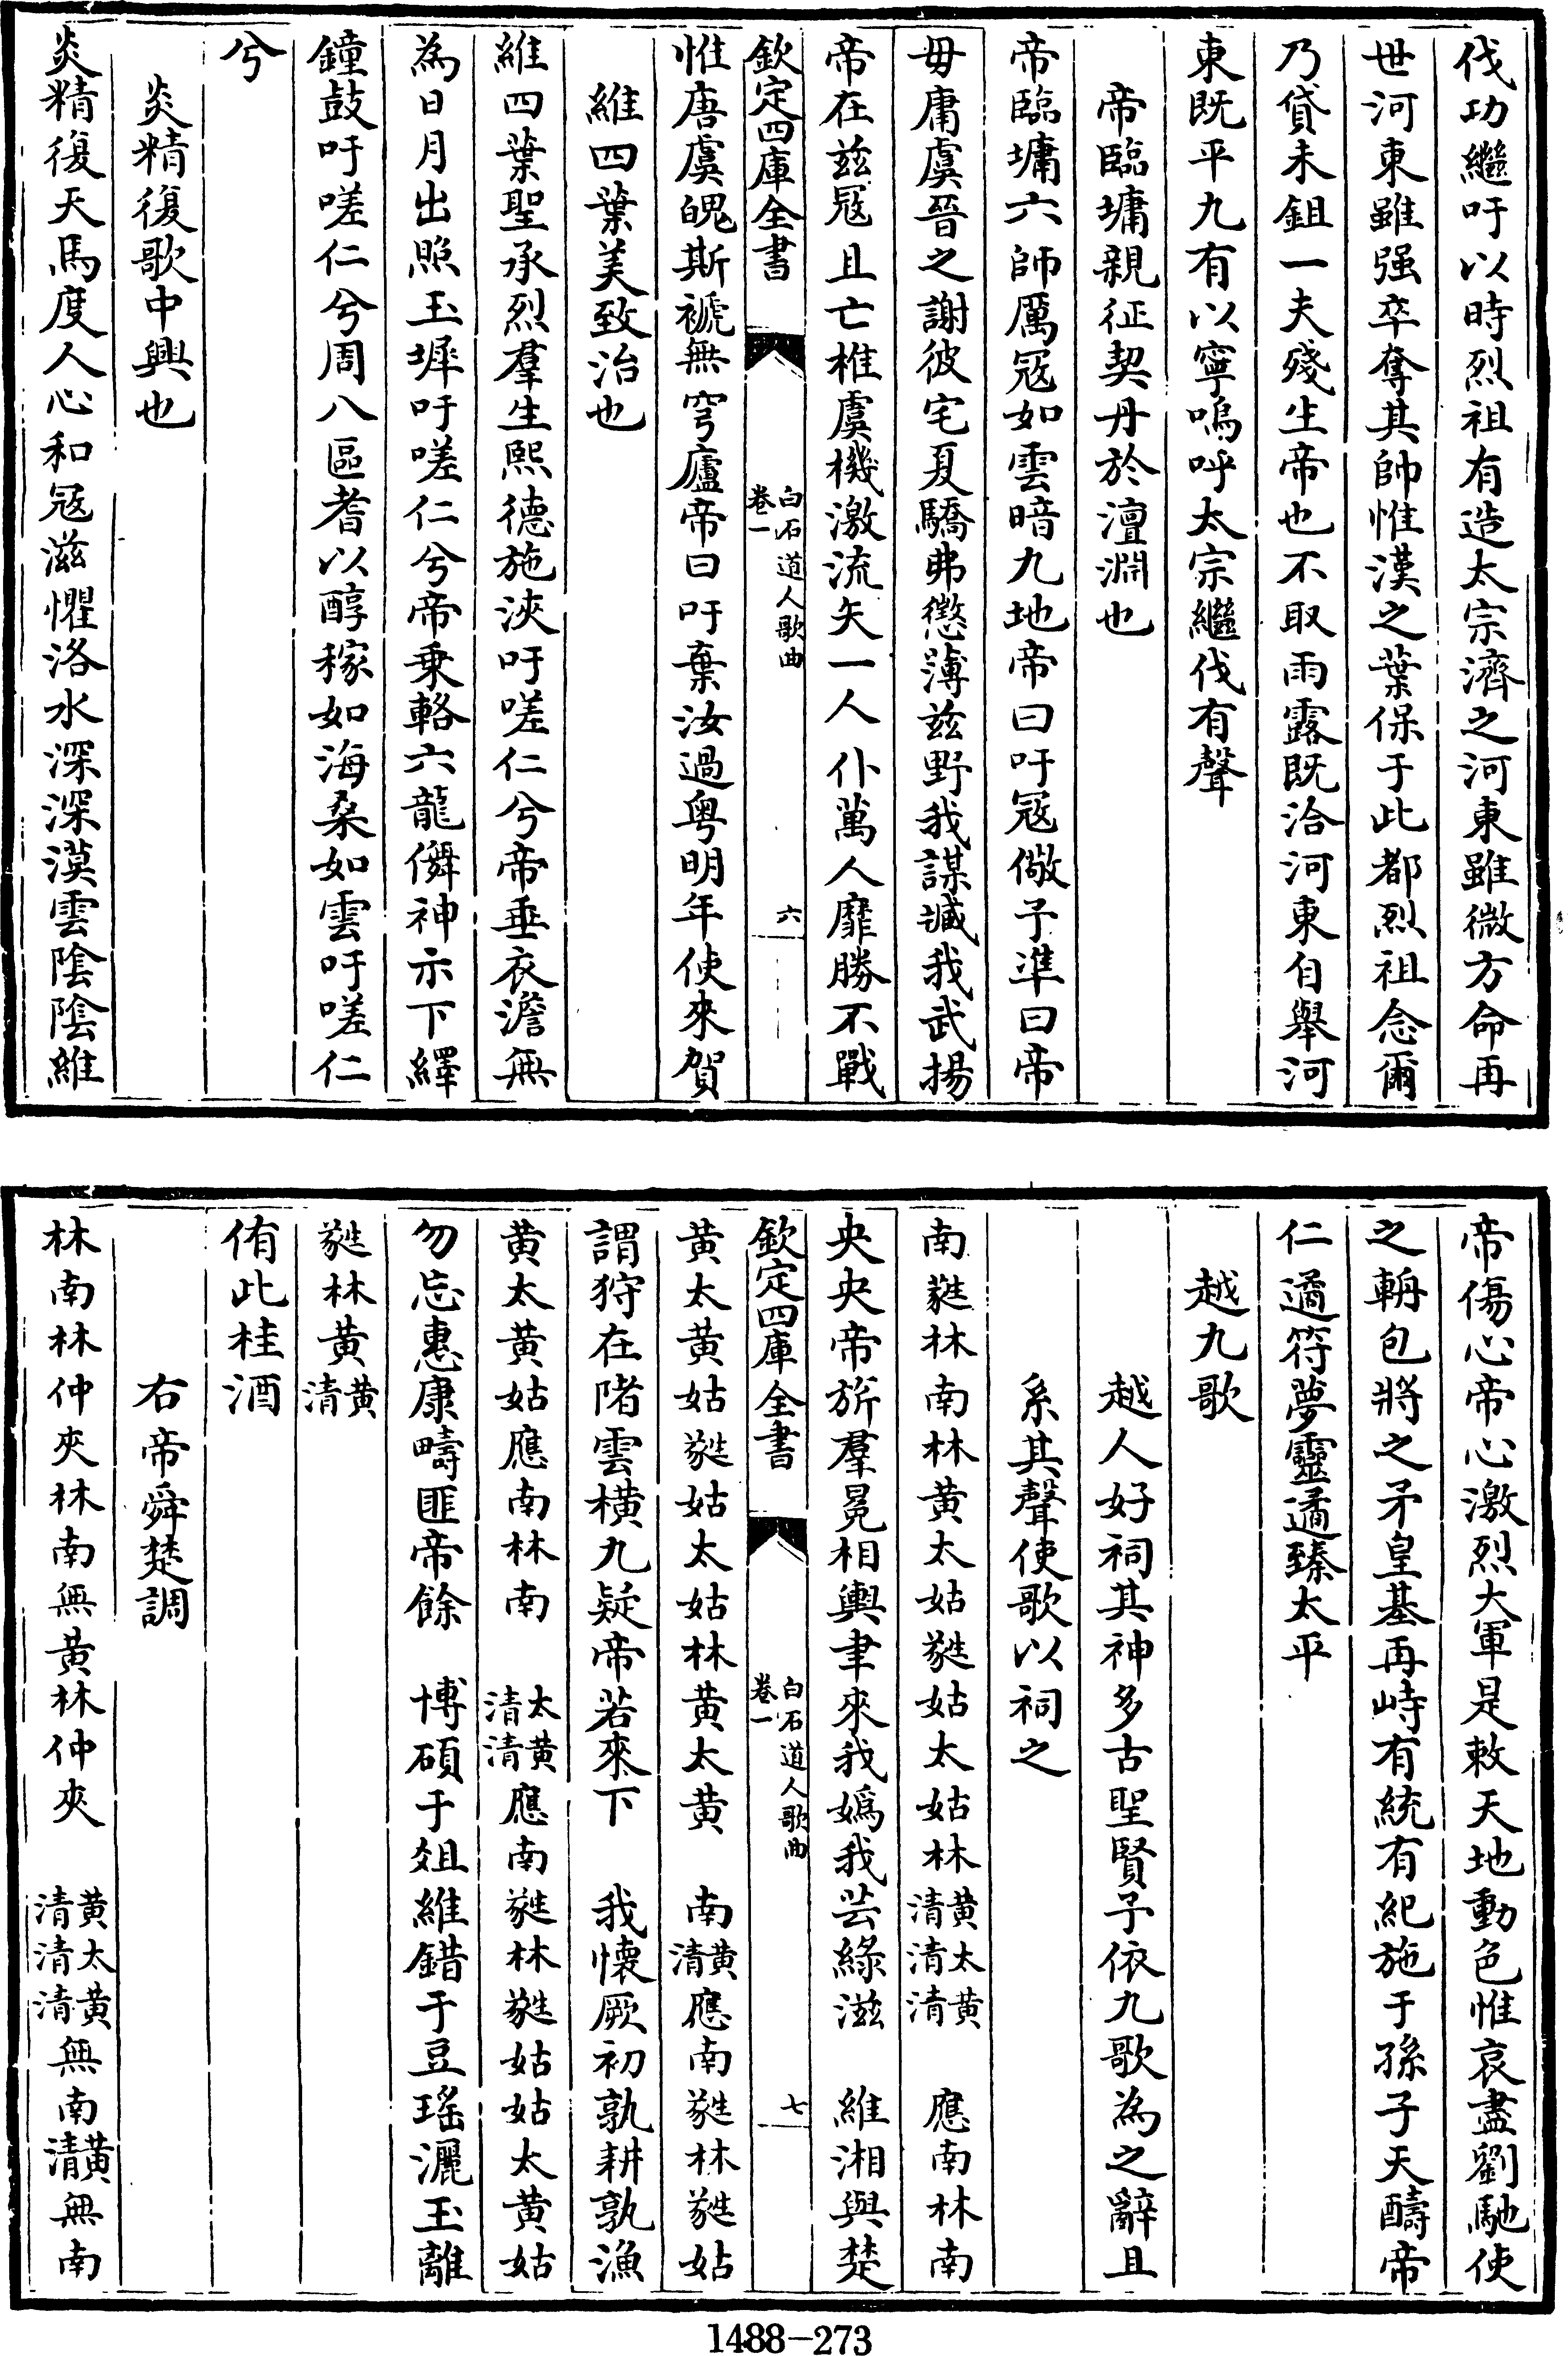 伐功繼吁以時烈祖有造太宗濟之河東雖微方命再
世河東雖强卒奪其帥惟漢之葉保于此都烈祖念爾
乃貸未鉏一夫殘生帝也不取雨露既洽河東自舉河
東既平九有以寧嗚呼太宗繼伐有聲
帝臨墉親征契丹於澶淵也
帝臨墉六師厲冦如雲暗九地帝曰吁冦儆予準曰帝
毋庸虞晉之謝彼宅夏驕弗懲薄兹野我謀臧我武揚
帝在兹冦且亡椎虞機激流矢一人仆萬人靡勝不戰
欽定四庫全書
白石道人歌曲
卷一
六
惟唐虞皝斯褫無穹廬帝曰吁棄汝過粤明年使來賀
維四葉美致治也
維四葉聖承烈羣生熙德施浹吁嗟仁兮帝垂衣澹無
為日月出照玉墀吁嗟仁兮帝乗輅六龍儛神示下繹
鐘鼓吁嗟仁兮周八區耆以醇稼如海桑如雲吁嗟仁
兮
炎精復歌中興也
炎精復天馬度人心和冦滋懼洛水深深漠雲陰陰維
帝傷心帝心激烈大軍是敕天地動色惟哀盡劉馳使
之輈包將之矛皇基再峙有統有紀施于孫子天醻帝
仁遹符夢靈遹臻太平
越九歌
越人好祠其神多古聖賢予依九歌為之辭且
系其聲使歌以祠之
南蕤林南林黄太姑蕤姑太姑林黄清太清黄清 應南林南
央央帝旂羣冕相輿聿來我嬀我芸綠滋 維湘與楚
欽定四庫全書
白石道人歌曲
卷一
七
黄太黄姑蕤姑太姑林黄太黄 南黄清應南蕤林蕤姑
謂狩在陼雲横九疑帝若來下 我懷厥初孰耕孰漁
黄太黄姑應南林南 太清黄清應南蕤林蕤姑姑太黄姑
勿忘惠康疇匪帝餘 博碩于俎維錯于豆瑤灑玉離
蕤林黄黄清
侑此桂酒
右帝舜楚調
林南林仲夾林南無黄林仲夾 黄清太清黄清無南黄清無南
1488-273